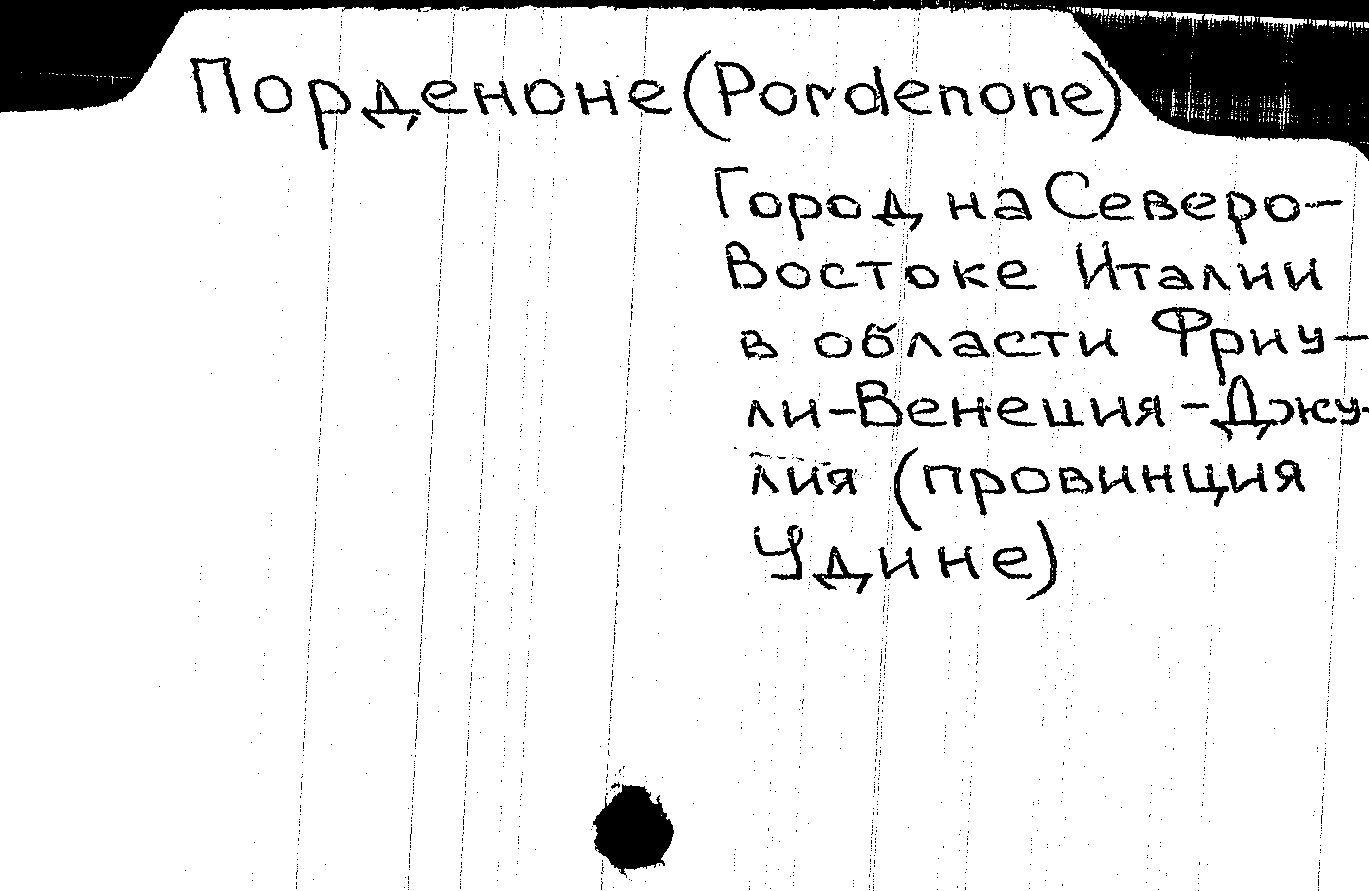 Порденоне (Pordenone)
Город на Северо-
Востоке Италии
в области Фриу-
ли-Венеция-Джу-
лия (провинция
Удине)